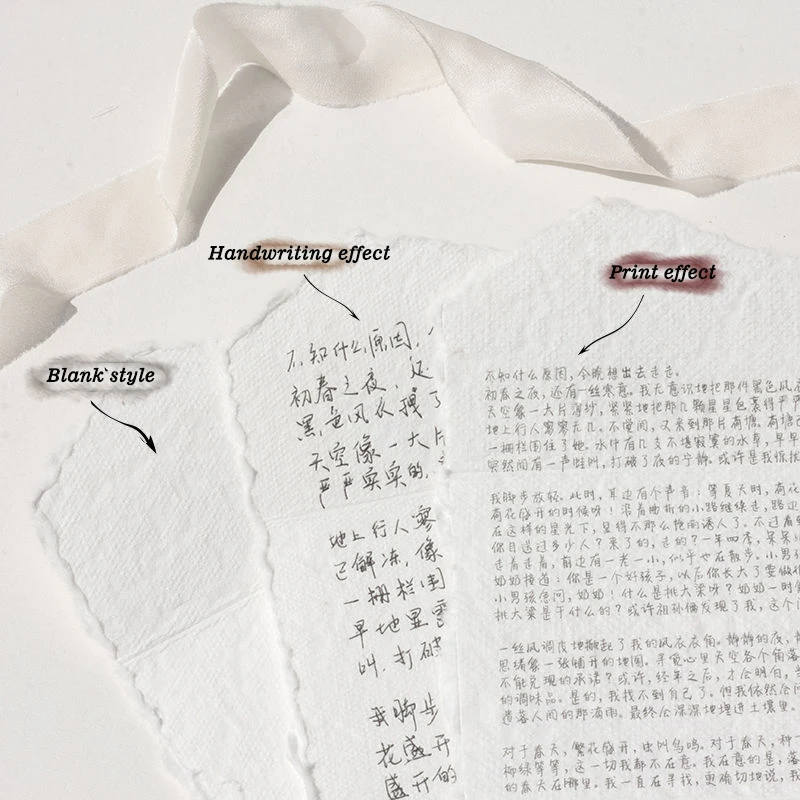 Handwriting effect
Print effect
Blank style
不知什么原因，
初春之夜，还
黑色风衣拽了
天空像一大片
严严实实的，
地上行人寥
已解冻，像
一栅栏围
早地冒雪
叫，打破
我脚步
花盛开
盛开的
不知什么原因，今晚想出去走走。
初春之夜，还有一丝寒意，我无意识地把那件黑色风衣
天空像一大片薄纱，紧紧地把那几颗星星包裹得严严
地上行人寥寥无几。不觉间，又来到那片荷塘。荷塘已
一栅栏围住了她。水中有几支不堪寂寞的水草，早早
突然间有一声蛙叫，打破了夜的宁静。或许是我惊扰
我脚步放轻。此时，耳边有个声音：等夏天时，荷花
荷花盛开的时候呀！沿着曲折的小路继续走，路边
在这样的星光下，显得不那么艳丽诱人了。不过看
你目送过多少人？来了的，走的？一年四季，呆呆
走着走着，前边有一老一小，似乎也在散步。小男孩
奶奶接道：你是一个好孩子，以后你长大了要做
小男孩急问，奶奶！什么是挑大梁呀？奶奶一时
挑大梁是干什么的？或许祖孙俩发现了我，这个
一丝风调皮地撩起了我的风衣衣角。静静的夜，
思绪像一张铺开的地图。寻觅心里天空各个角落
不能兑现的承诺？或许，经年之后，才会明白，
的调味品。是的，我找不到自己了。但我依然会
遗落人间的那滴雨。最终会深深地埋进土壤里。
对于春天，繁花盛开，虫叫鸟鸣。对于春天，种
柳绿等等，这一切我都不在意。我在意的是，落
的春天在哪里。我一直在寻找，更确切地说，我